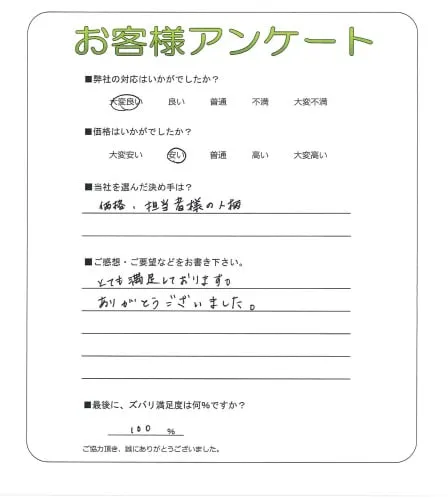 お客様アンケート
■弊社の対応はいかがでしたか？
大変良い 良い 普通 不満 大変不満
■価格はいかがでしたか？
大変安い 安い 普通 高い 大変高い
■当社を選んだ決め手は？
価格、担当者様の人柄
■ご感想・ご要望などをお書き下さい。
とても満足しております。
ありがとうございました。
■最後に、ズバリ満足度は何％ですか？
100 %
ご協力頂き、誠にありがとうございました。